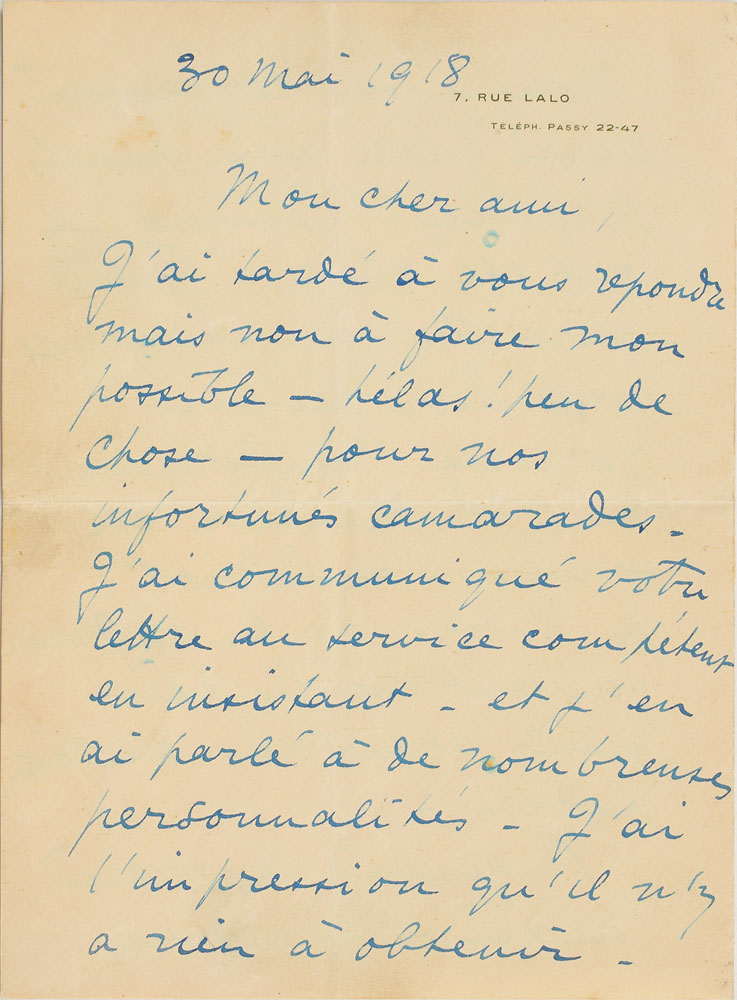 30 Mai 1918
7, RUE LALO
TÉLÉPH. PASSY 22-47
Mon cher ami,
J'ai tardé à vous repondre
mais non à faire mon
possible — hélas ! peu de
chose — pour nos
infortunés camarades.
J'ai communiqué votre
lettre au service compétent
en insistant - et j'en
ai parlé à de nombreuses
personnalités - J'ai
l'impression qu'il n'y
a rien à obtenir -